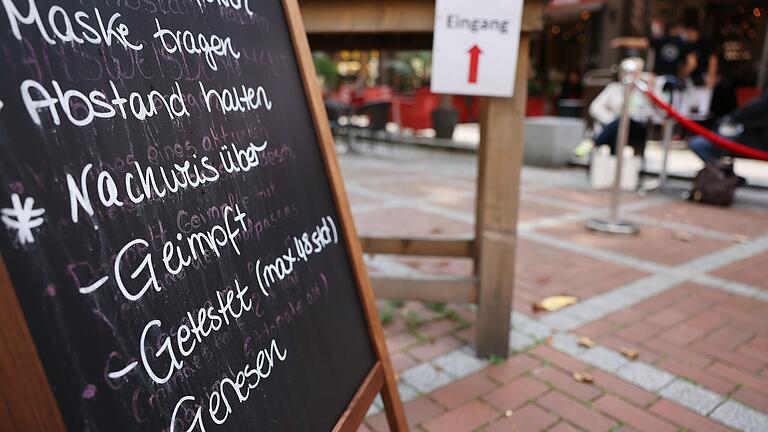 Maske tragen
Abstand halten
* Nachweis über
- Geimpft
- Getestet (max. 48 std)
- Genesen
Eingang